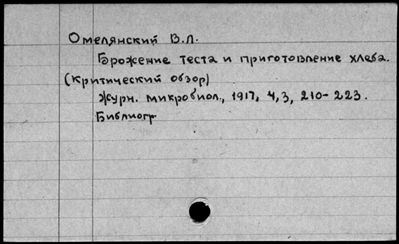 Омелянский В.Л.
Брожение теста и приготовление хлеба.
(критический обзор)
Журн. микробиол., 1917, 4,3, 210-223.
Библиогр